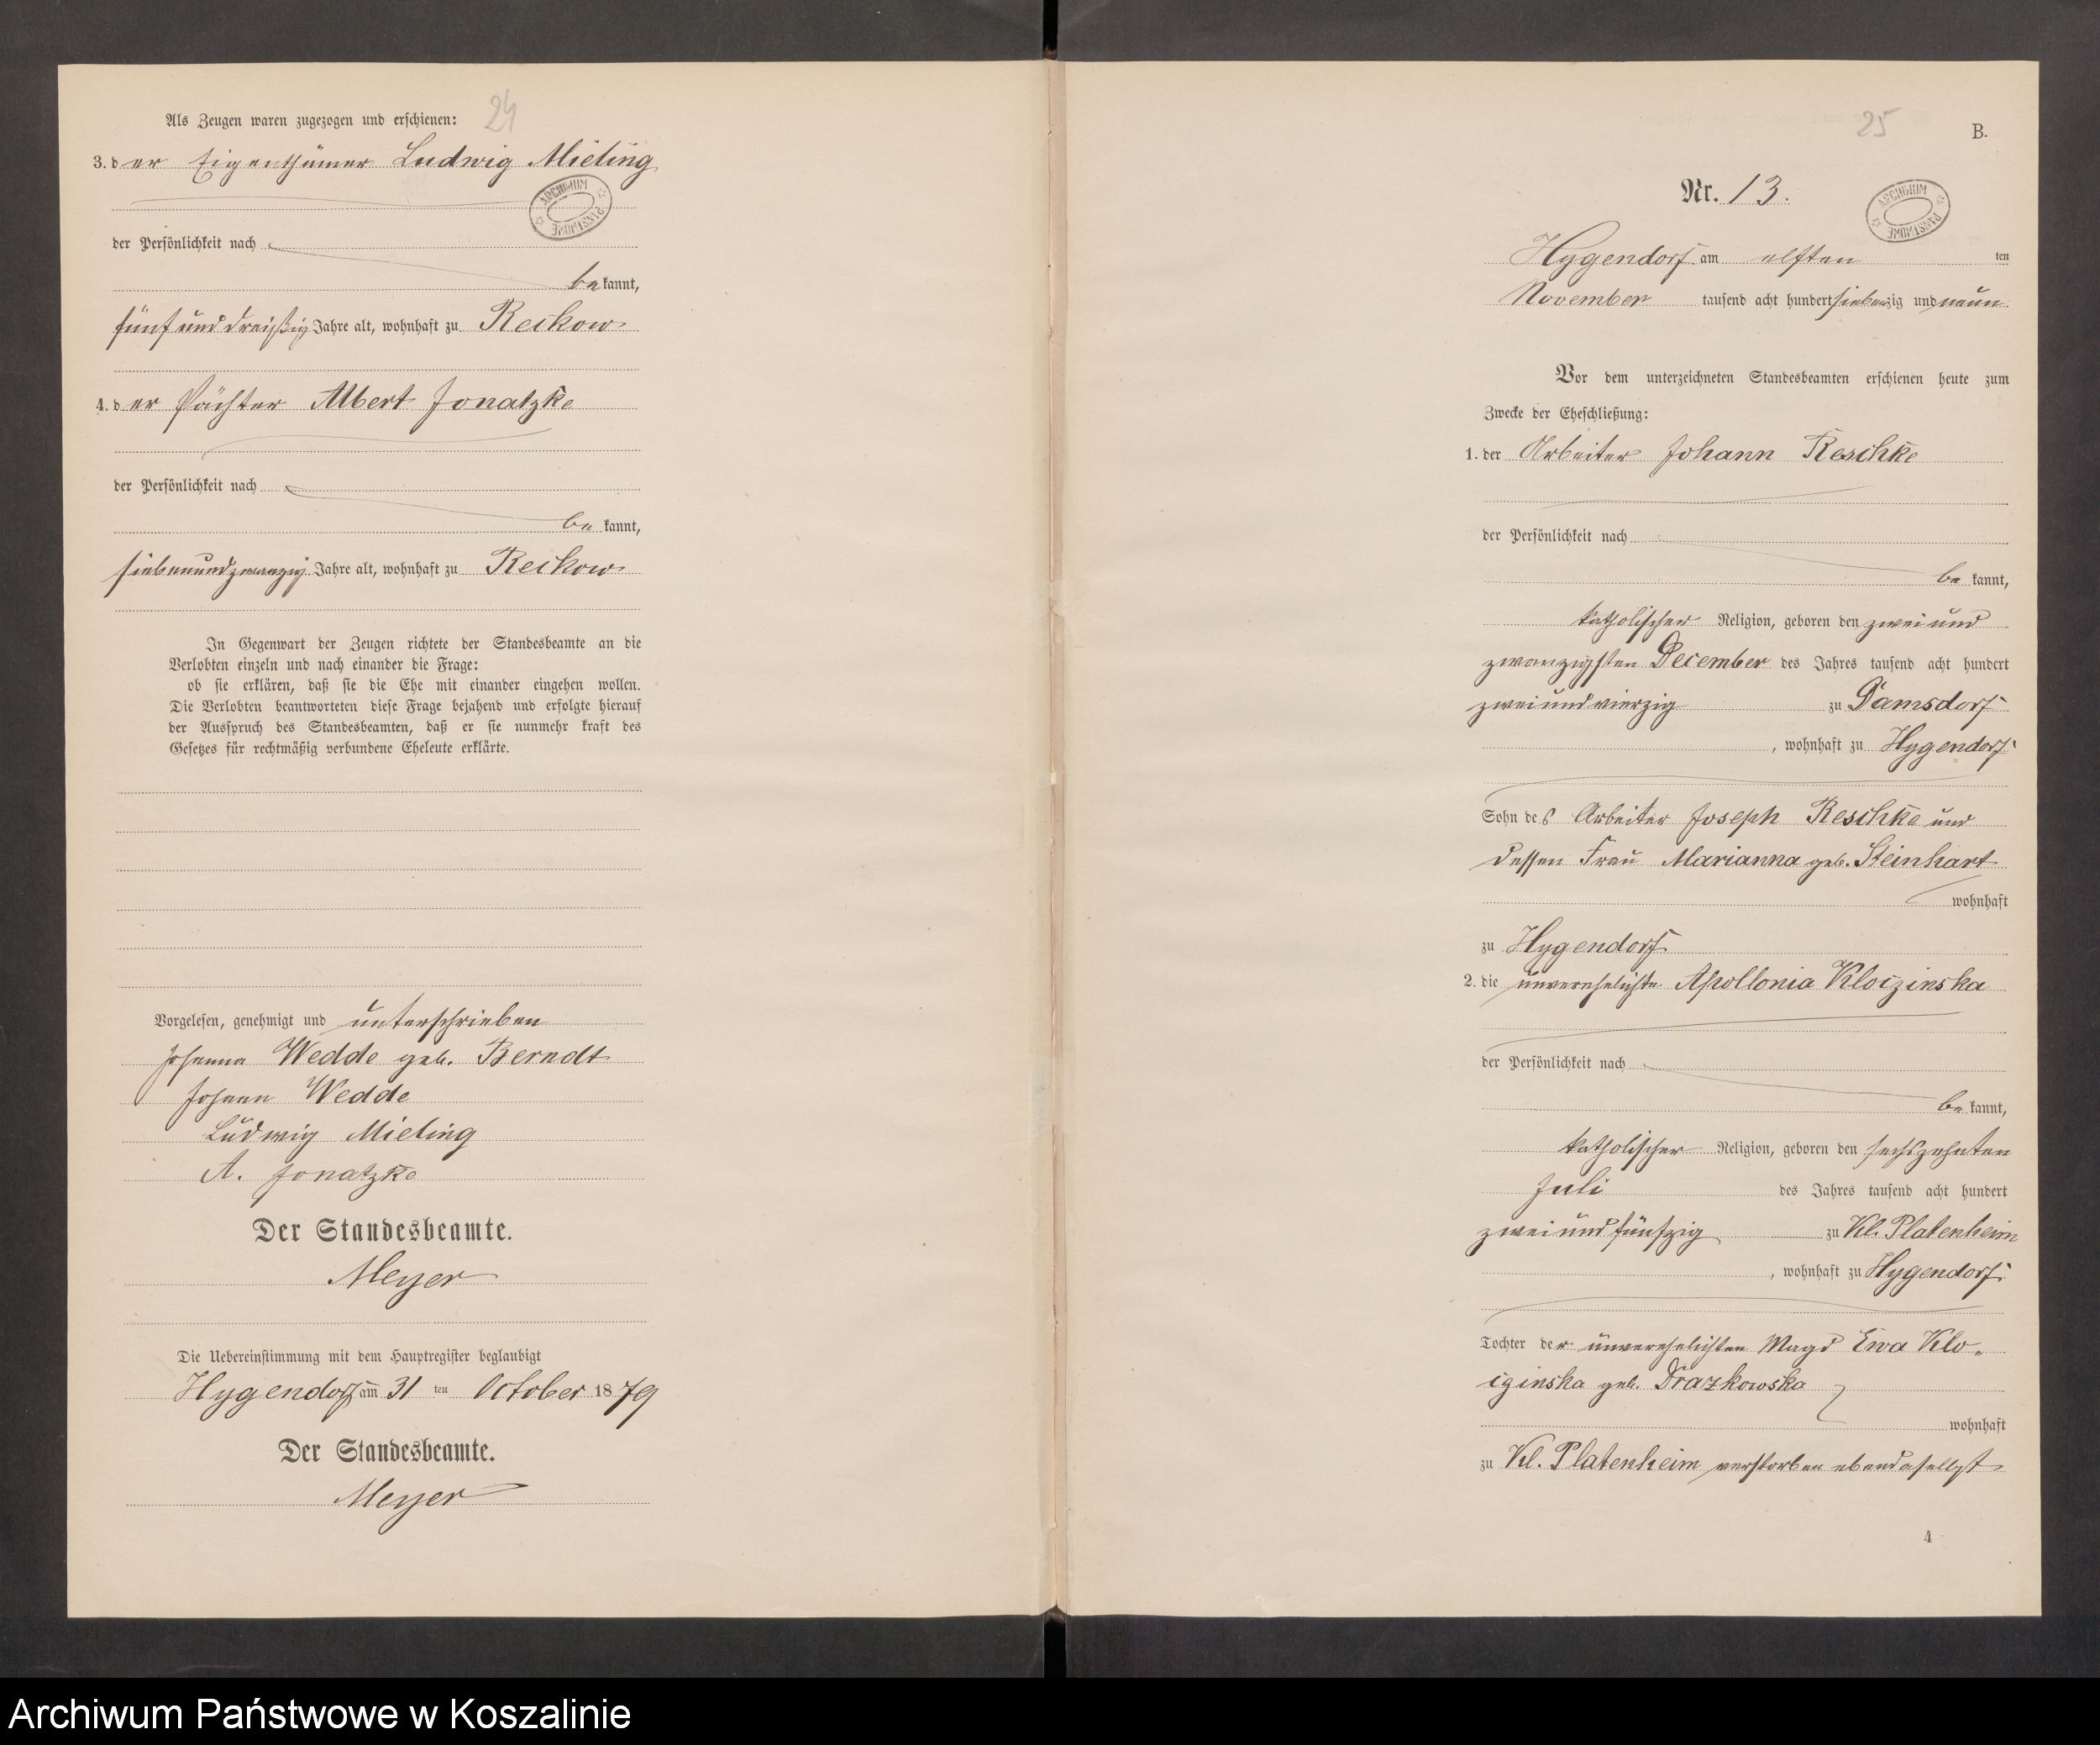 24
Als Zeugen waren zugezogen und erschienen:
3. der Eigenthümer Ludwig Mieling
ARCHIWUM PAŃSTWOWE
der Persönlichkeit nach
be kannt,
fünf und dreißig Jahre alt, wohnhaft zu Reckow
4. der Pächter Albert Jonatzke
der Persönlichkeit nach
be kannt,
siebenundzwanzig Jahre alt, wohnhaft zu Reckow
In Gegenwart der Zeugen richtete der Standesbeamte an die
Verlobten einzeln und nach einander die Frage:
ob sie erklären, daß sie die Ehe mit einander eingehen wollen.
Die Verlobten beantworteten diese Frage bejahend und erfolgte hierauf
der Ausspruch des Standesbeamten, daß er sie nunmehr kraft des
Gesetzes für rechtmäßig verbundene Eheleute erklärte.
Vorgelesen, genehmigt und unterschrieben
Johanna Wedde geb. Berndt
Johann Wedde
Ludwig Mieling
A. Jonatzke
Der Standesbeamte.
Meyer
Die Uebereinstimmung mit dem Hauptregister beglaubigt
Hygendorf am 31 ten October 1879
Der Standesbeamte.
Meyer
25
B.
Nr. 13.
ARCHIWUM PAŃSTWOWE
Hygendorf am elften ten
November tausend acht hundert siebenzig und neun
Vor dem unterzeichneten Standesbeamten erschienen heute zum
Zwecke der Eheschließung:
1. der Arbeiter Johann Reschke
der Persönlichkeit nach
be kannt,
katholischer Religion, geboren den zwei und
zwanzigsten December des Jahres tausend acht hundert
zwei und vierzig zu Damsdorf
, wohnhaft zu Hygendorf
Sohn des Arbeiter Joseph Reschke und
dessen Frau Marianna geb. Steinhart
wohnhaft
zu Hygendorf
2. die unverehelichte Apollonia Kloczinska
der Persönlichkeit nach
be kannt,
katholischer Religion, geboren den sechszehnten
Juli des Jahres tausend acht hundert
zwei und fünfzig zu Kl. Platenheim
, wohnhaft zu Hygendorf
Tochter der unverehelichten Magd Ewa Klo-
czinska geb. Drazkowska
wohnhaft
zu Kl. Platenheim verstorben ebendaselbst
4
Archiwum Państwowe w Koszalinie